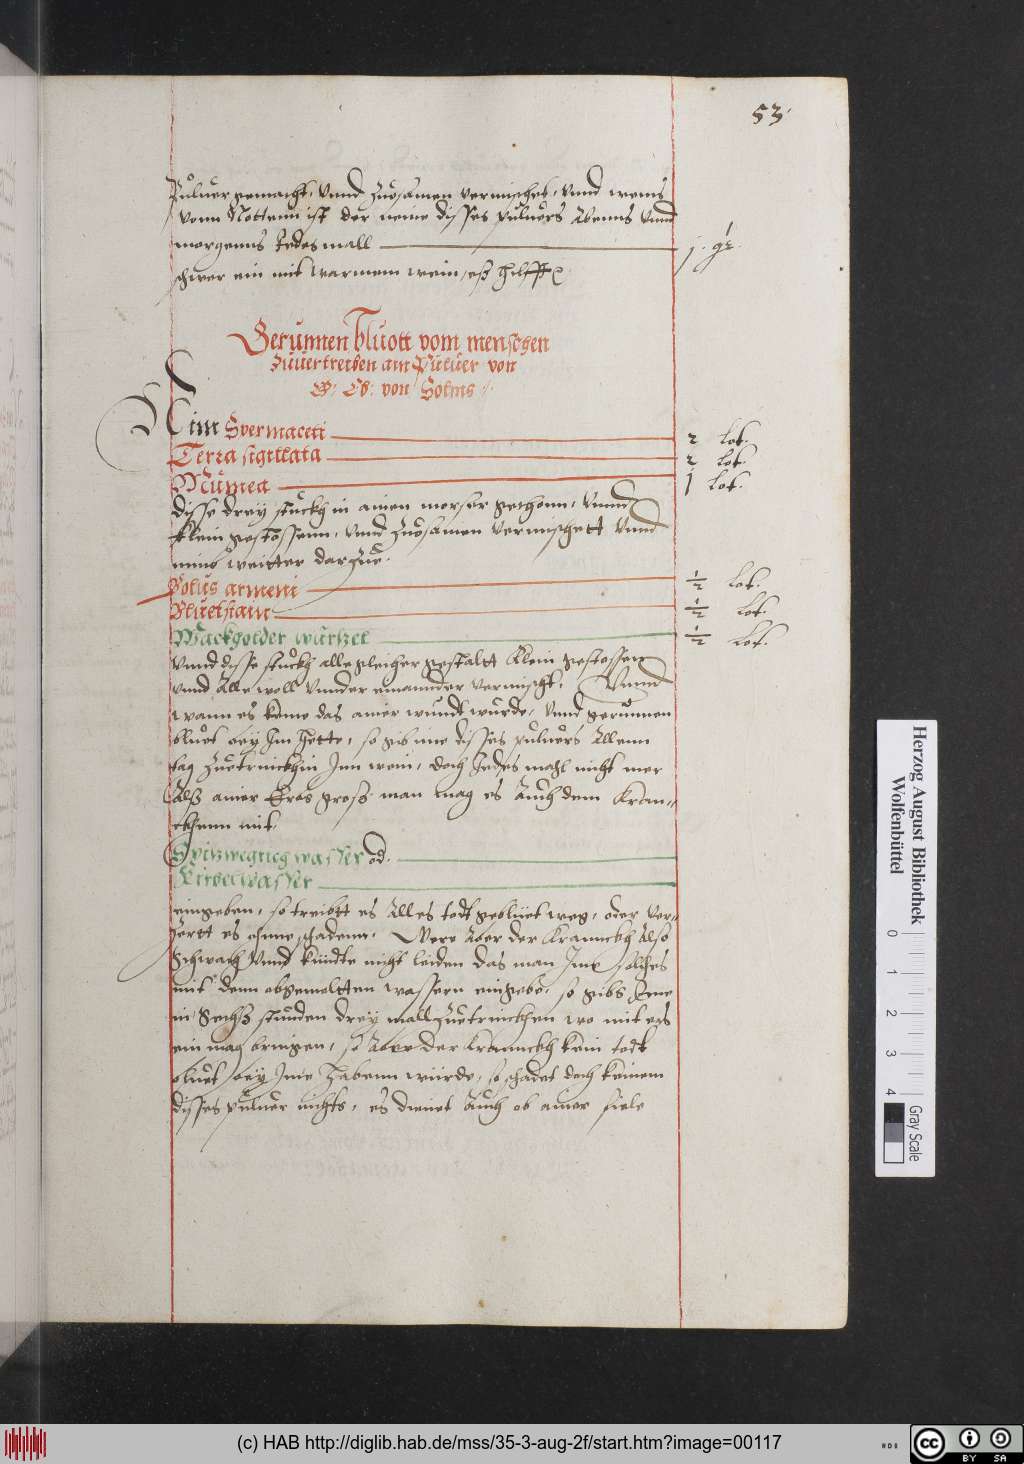 53
Pulver gemacht, vnnd zuosamen vermischet, vnnd wenns
vonn Nottenn ist der neme disses pulvers Abenns vnnd
morgenns Jedes mall j. qz.
schwer ein mit warmem wein, eß hilfft
Gerunnen bluott vom menschen
Zuuertreiben ain Puluer von
G: Eb: von Solms
Nim Spermaceti 2 lot.
Terra sigillata 2 lot.
Mumea j lot.
disse drey stuckh in ainen morser gethonn, vnnd
klein gestossenn, vnnd zuosamen vermischett vnnd
nimb weitter darzue.
Bolus armeni ½ lot.
Bluetstain ½ lot.
Wackholder wurtzel ½ lot.
vnnd disse stuckh alle gleicher gestaltt klein gestossen
vnnd Alle woll vnnder einannder vermischt, vnnd
wann es keme das ainer wundt wurde, vnnd gerunnen
bluet bey Im hette, so gib ime disses pulvers Allenn
tag zuetrinckhin Inn wein, doch Jedes mahl nicht mer
Alß ainer Erbs groß man mag es Auch dem Kran-
ckhenn mit
Spitzwegrieg wasser od.
Kirbelwasser
eingeben, so treibtt es Alles todt gebluet weg, oder ver-
zertt es ohnne schadenn. Were Aber der Krannckh Also
Schwach vnnd kundte nicht leiden das man Ime solches
mit denn obgemeltten wassern eingebe, so gibs Ime
in Sechß stunden drey mall zuetrinckhen wo mit ers
ein mag bringen, so Aber der krannckh kein todt
bluet bey Ime habenn wurde, so schadet doch keinem
disses pulver nichts, es dienet Auch ob ainer fiele
Herzog August Bibliothek
Wolfenbüttel
0 1 2 3 4
Gray Scale
(c) HAB http://diglib.hab.de/mss/35-3-aug-2f/start.htm?image=00117
cc BY SA